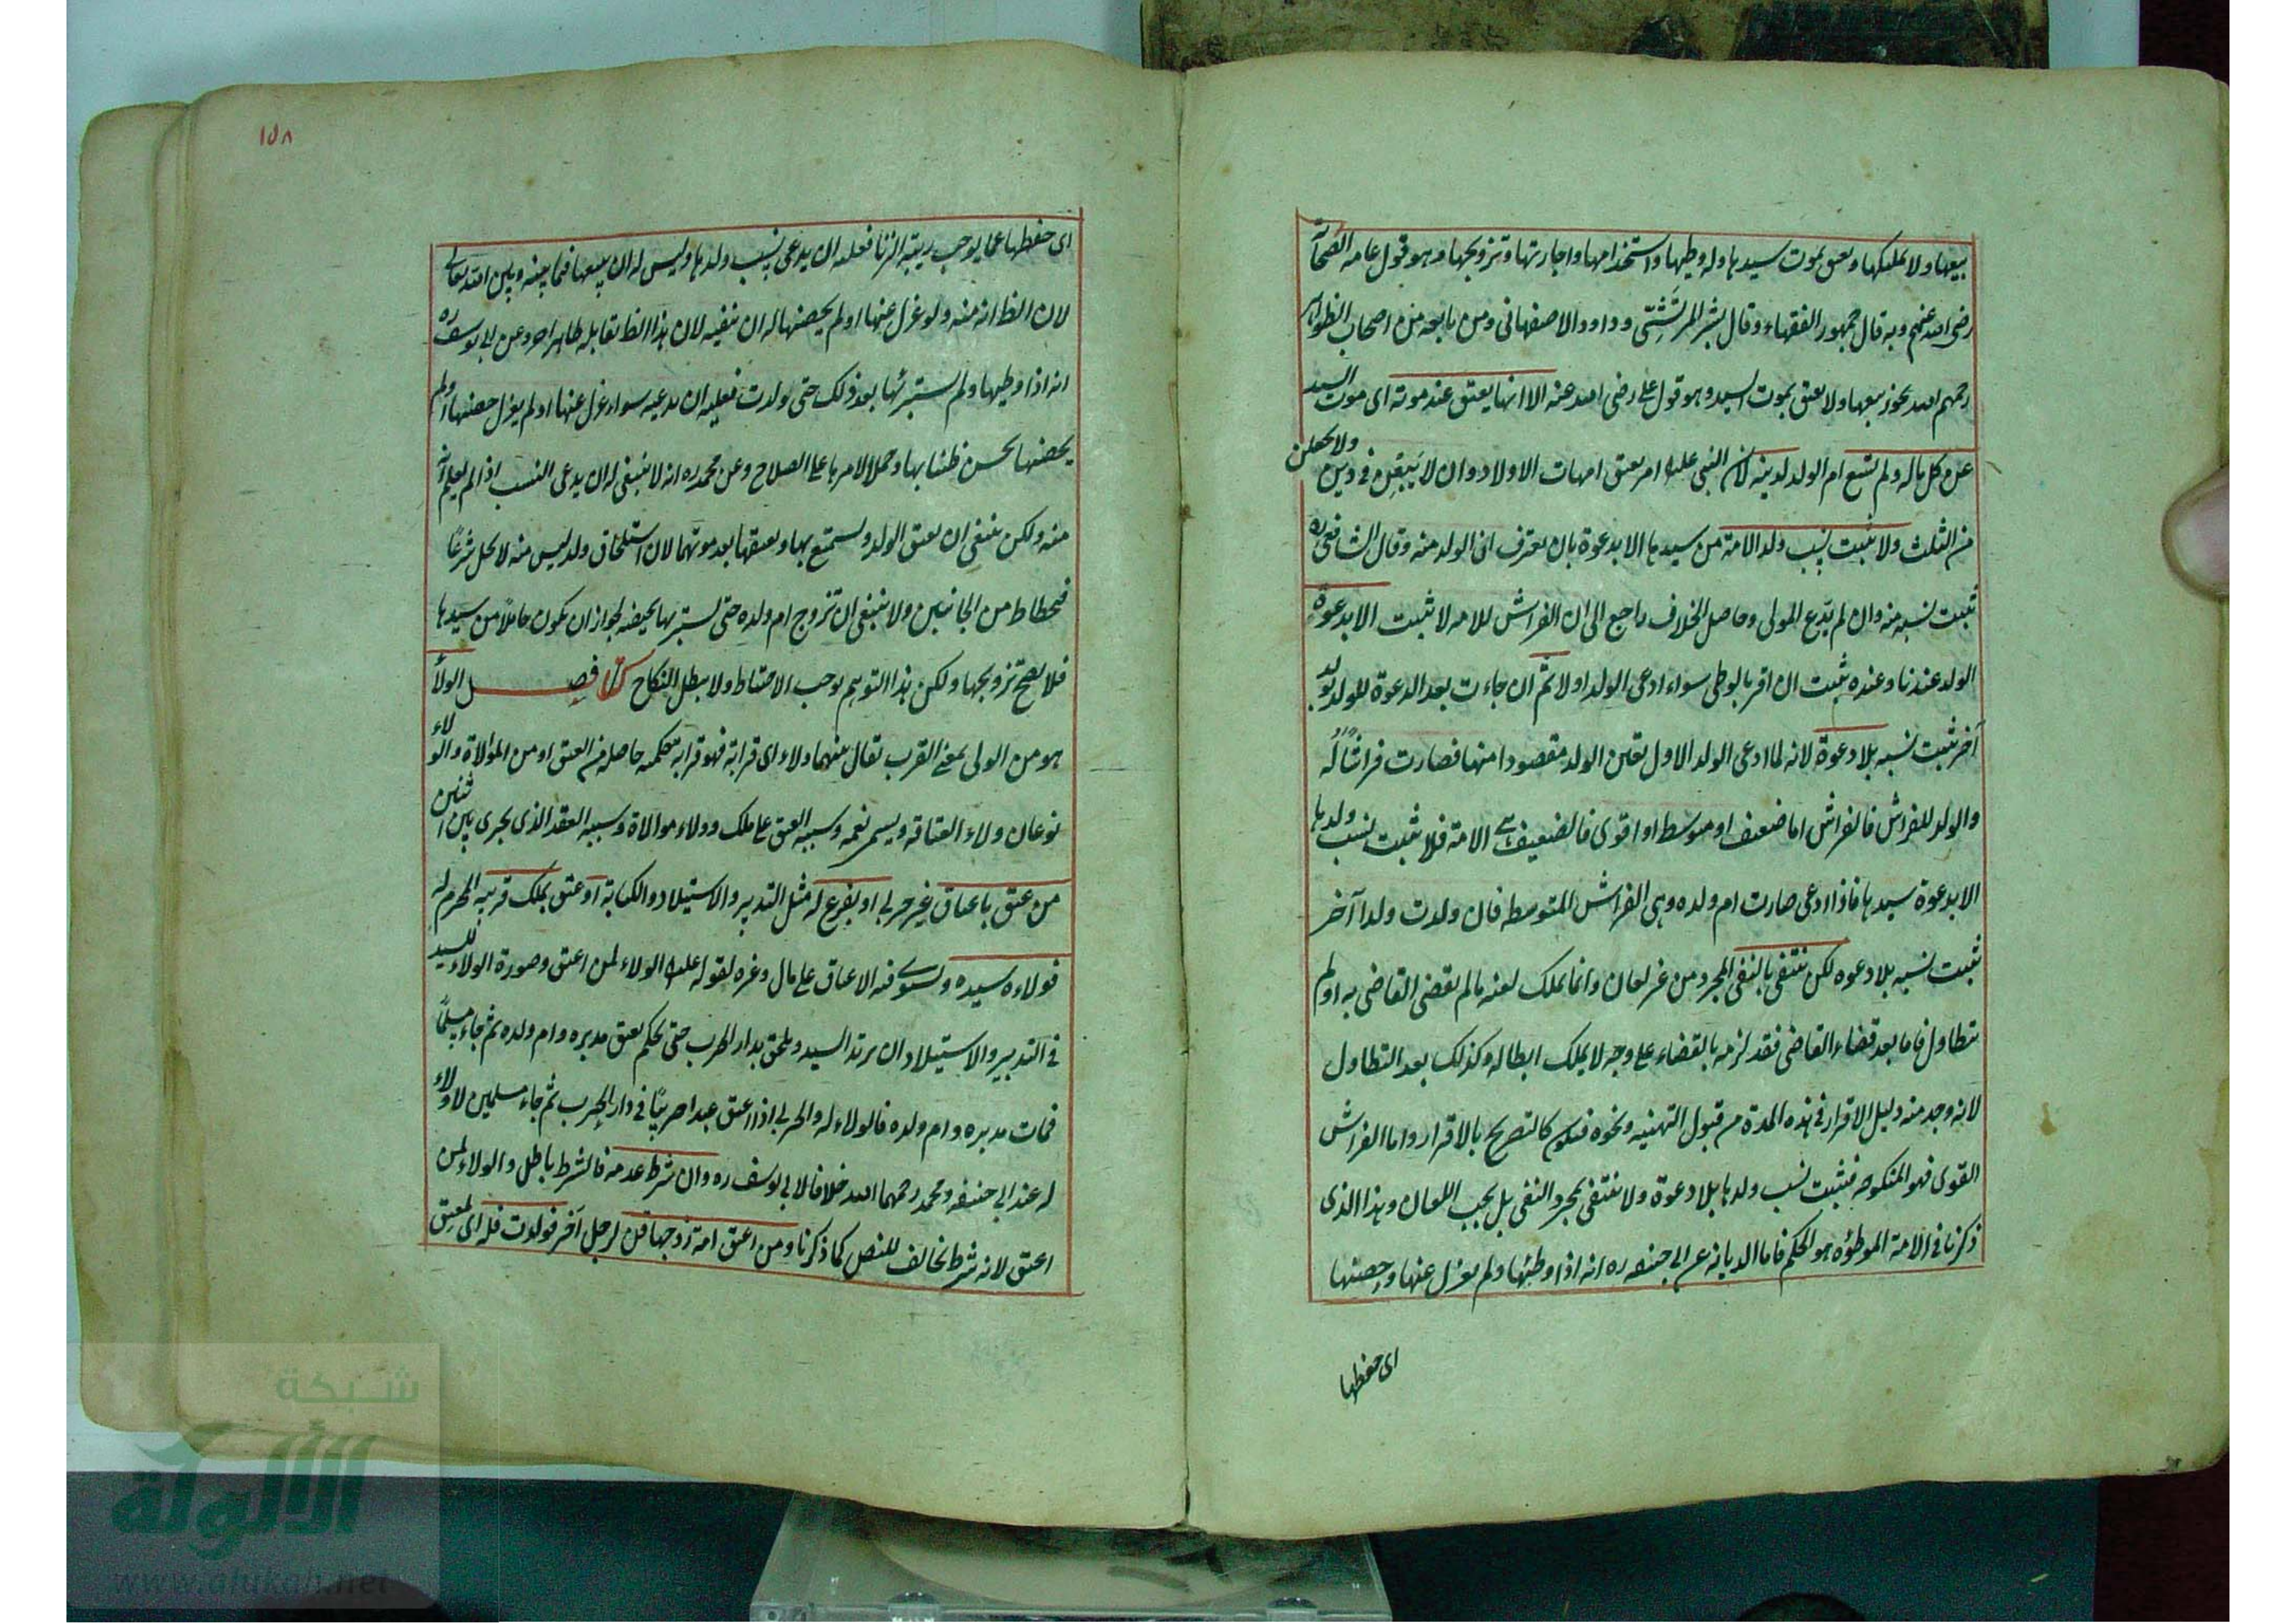 بيعها ولا تمليكها وتعتق بموت سيدها وله وطيها واستخدامها واجارتها وتزويجها وهو قول عامة الصحابة
رضى الله عنهم وبه قال جمهور الفقهاء وقال بشر المريسى وداود الاصفهانى ومن تابعه من اصحاب الظواهر
رحمهم الله يجوز بيعها ولا يعتق بموت السيد وهو قول على رضى الله عنه الا انها يعتق عند موته اى موت السيد
عن كل ماله ولم تسع ام الولد لدينه لان النبى عليه امر بعتق امهات الاولاد وان لا يبقين فى دين ولا يجعلن
من الثلث ولا يثبت نسب ولد الامة من سيدها الا بدعوة بان يعترف ان الولد منه وقال الشافعى ره
يثبت نسبه منه وان لم يدّع المولى وحاصل الخلاف راجع الى ان الفراش للامه لا يثبت الا بدعوة
الولد عندنا وعنده يثبت ان اقر بالوطى سواء ادعى الولد او لا ثم ان جاءت بعد الدعوة للولد بولد
آخر يثبت نسبه بلا دعوة لانه لما ادعى الولد الاول تعين الولد مقصودا منها فصارت فراشًا له
والولد للفراش فالفراش اما ضعيف او متوسط او اقوى فالضعيف هى الامة فلا يثبت نسب ولدها
الا بدعوة سيدها فاذا ادعى صارت ام ولده وهى الفراش المتوسطه فان ولدت ولدا آخر
يثبت نسبه بلا دعوه لكن ينتفى بالنفى المجرد من غير لعان وانما يملك لعنه ما لم يقضى القاضى به او لم
يتطاول فاما بعد قضاء القاضى فقد لزمه بالقضاء على وجه لا يملك ابطاله وكذلك بعد التطاول
لانه وجد منه دليل الاقرار فى هذه المدة من قبول التهنيه ونحوه فيكون كالتصريح بالاقرار واما الفراش
القوى فهو المنكوحه فيثبت نسب ولدها بلا دعوة ولا ينتفى بمجرد النفى بل يجب اللعان وهذا الذى
ذكرنا فى الامة الموطؤه هو الحكم فاما الديانه عن ابى حنيفه ره انه اذا وطئها ولم يعزل عنها وحصنها
اى حفظها
١٥٨
اى حفظها عما يوجب ريبة الزنا فعليه ان يدعى نسب ولدها وليس له ان يبيعها فيما بينه وبين الله تعالى
لان الظ انه منه ولو عزل عنها او لم يحصنها له ان ينفيه لان هذا الظ يقابله ظاهر اخر وعن ابى يوسف ره
انه اذا وطيها ولم يستبرئها بعد ذلك حتى ولدت فعليه ان يدعيه سواء عزل عنها او لم يعزل حصنها او لم
يحصنها يحسن ظنا بها وحملا لامرها على الصلاح وعن محمد ره انه لا ينبغى له ان يدعى النسب اذا لم يعلم انه
منه ولكن ينبغى ان يعتق الولد ويستمتع بها ويعتقها بعد موتهما لان استلحاق ولد ليس منه لا يحل شرعًا
فيحطاط من الجانبين ولا ينبغى ان تزوج ام ولده حتى يستبريها بحيضه لجواز ان يكون حاملا من سيدها
فلا يصح تزويجها ولكن هذا التوهم يوجب الاحتياط ولا يبطل النكاح فصل الولاء
هو من الولى بمعنى القرب يقال بينهما ولاء اى قرابة فهو قرابه حكميه حاصله من العتق او من الموالاة والولاء
نوعان ولاء العتاقه ويسمى نعمه وسببه العتق على ملك وولاء موالاة وسببه العقد الذى يجرى بين اثنين
من عتق باعتاق غير حربى او بفرع له مثل التدبير والاستيلاد والكتابة او عتق بملك قريبه المحرم له
فولاءه سيده ويستوى فيه الاعتاق على مال وغيره لقوله عليه الولاء لمن اعتق وصورة الولاء للسيد
فى التدبير والاستيلاد ان يرتد السيد ويلحق بدار الحرب حتى يحكم بعتق مدبره وام ولده ثم جاء مسلمًا
فمات مدبره وام ولده فالولاء له والحربى اذا اعتق عبدا حربيًا فى دار الحرب ثم جاء مسلمين لا ولاء
له عند ابى حنيفه ومحمد رحمهما الله خلافا لابى يوسف ره وان شرط عدمه فالشرط باطل والولاء لمن
اعتق لانه شرط يخالف للنص كما ذكرنا ومن اعتق امة زوجها قن لرجل آخر فولدت فله اى لمعتق
شبكة
الألوكة
www.alukah.net